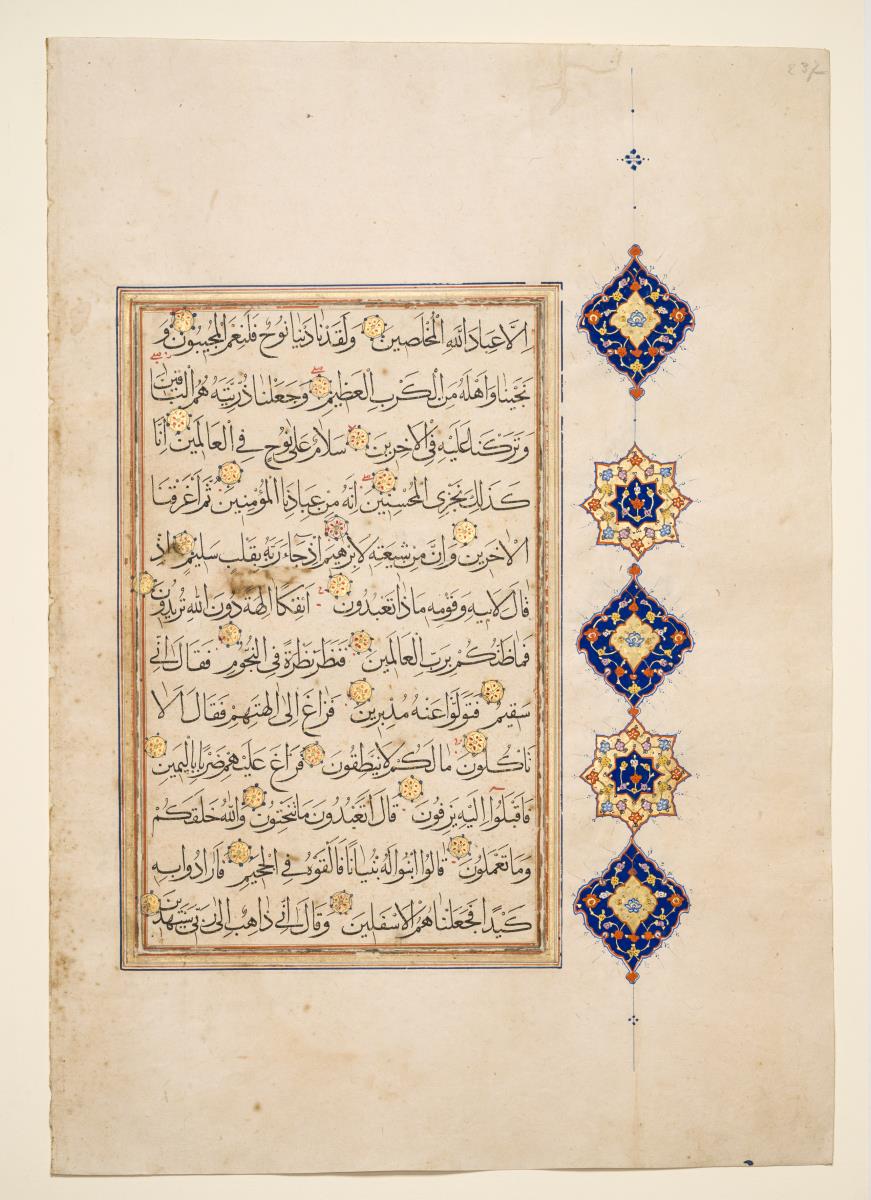 إِلَّا عِبَادَ اللهِ الْمُخْلَصِينَ وَلَقَدْ نَادَينَا نُوحٌ فَلَنِعْمَ الْمُجِيبُونَ وَ
نَجَّيْنَاهُ وَاَهْلَهُ مِنَ الْكَرْبِ الْعَظِيمِ وَجَعَلْنَا ذُرِّيَّتَهُ هُمُ الْبَاقِينَ
وَتَرَكْنَا عَلَيْهِ فِي الْاٰخِرِينَ سَلَامٌ عَلٰى نُوحٍ فِي الْعَالَمِينَ اِنَّا
كَذٰلِكَ نَجْزِي الْمُحْسِنِينَ اِنَّهُ مِنْ عِبَادِنَا الْمُؤْمِنِينَ ثُمَّ اَغْرَقْنَا
الْاٰخَرِينَ وَاِنَّ مِنْ شِيعَتِهِ لَاِبْرٰهِيمَ اِذْ جَاءَ رَبَّهُ بِقَلْبٍ سَلِيمٍ اِذْ
قَالَ لِاَبِيهِ وَقَوْمِهِ مَاذَا تَعْبُدُونَ اَئِفْكًا اٰلِهَةً دُونَ اللهِ تُرِيدُونَ
فَمَا ظَنُّكُمْ بِرَبِّ الْعَالَمِينَ فَنَظَرَ نَظْرَةً فِي النُّجُومِ فَقَالَ اِنِّي
سَقِيمٌ فَتَوَلَّوْا عَنْهُ مُدْبِرِينَ فَرَاغَ اِلٰى اٰلِهَتِهِمْ فَقَالَ اَلَا
تَاْكُلُونَ مَا لَكُمْ لَا يَنْطِقُونَ فَرَاغَ عَلَيْهِمْ ضَرْبًا بِالْيَمِينِ
فَاَقْبَلُوا اِلَيْهِ يَزِفُّونَ قَالَ اَتَعْبُدُونَ مَا تَنْحِتُونَ وَاللهُ خَلَقَكُمْ
وَمَا تَعْمَلُونَ قَالُوا ابْنُوا لَهُ بُنْيَانًا فَاَلْقُوهُ فِي الْجَحِيمِ فَاَرَادُوا بِهِ
كَيْدًا فَجَعَلْنَاهُمُ الْاَسْفَلِينَ وَقَالَ اِنِّي ذَاهِبٌ اِلٰى رَبِّي سَيَهْدِينِ